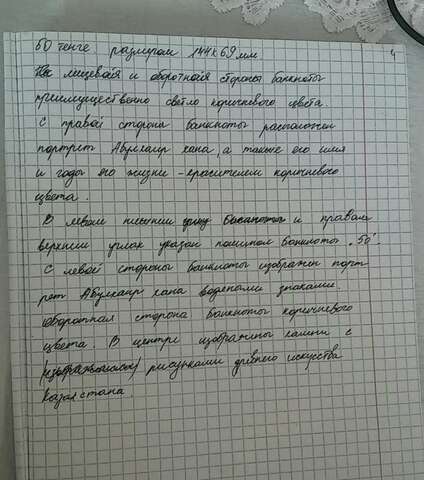 50 тенге размером 144х69 мм. 4
На лицевая и оборотная стороны банкноты
преимущественно светло коричневого цвета.
С правой стороны банкноты расположен
портрет Абулхаир хана, а также его имя
и годы его жизни – красителем коричневого
цвета.
В левом нижнем углу банкноты и правом
верхнем углах указан номинал банкноты "50".
С левой стороны банкноты изображен порт
рет Абулхаир хана водяными знаками.
Оборотная сторона банкноты коричневого
цвета. В центре изображены камни с
(изображением) рисунками древнего искусства
Казахстана.